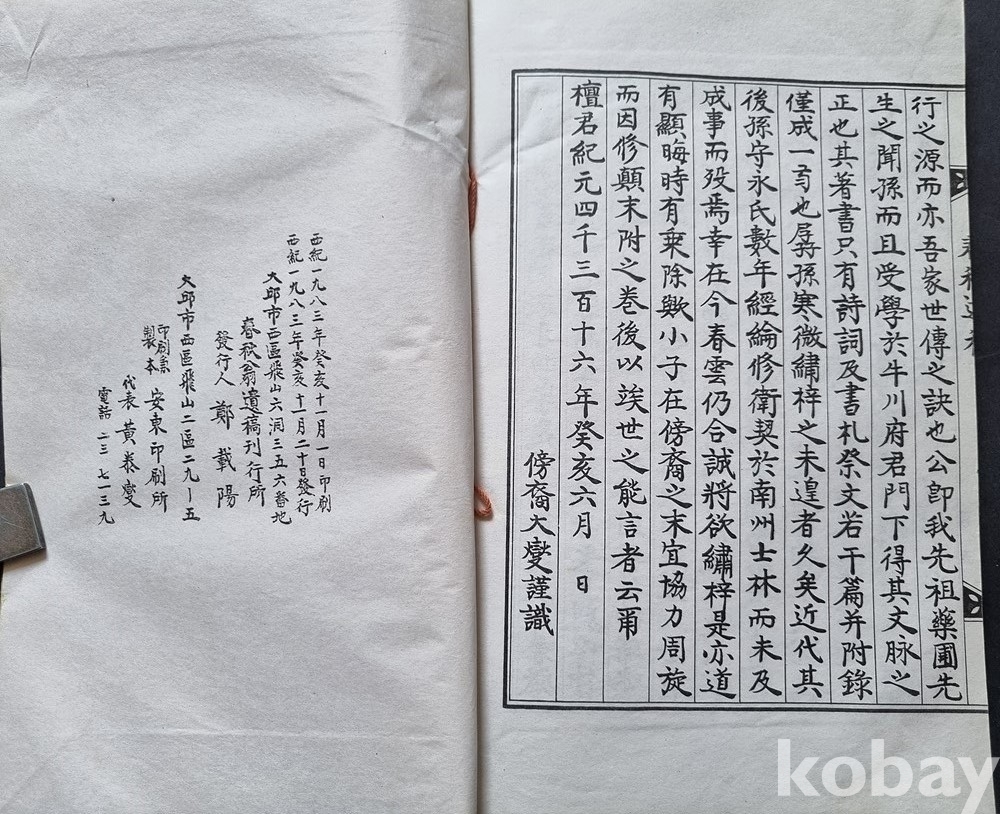 行之源而亦吾家世傳之訣也公卽我先祖藥圃先
生之聞孫而且受學於牛川府君門下得其文脉之
正也其著書只有詩詞及書札祭文若干篇并附錄
僅成一弓也孱孫寒微繡梓之未遑者久矣近代其
後孫守永氏數年經綸修衛契於南州士林而未及
成事而歿焉幸在今春雲仍合誠將欲繡梓是亦道
有顯晦時有乘除歟小子在傍裔之末宜協力周旋
而因修顛末附之卷後以竢世之能言者云爾
檀君紀元四千三百十六年癸亥六月 日
傍裔大燮謹識
西紀一九八三年癸亥十一月一日印刷
西紀一九八三年癸亥十一月二十日發行
大邱市西區飛山六洞三五六番地
春秋翁遺稿刊行所
發行人 鄭載陽
大邱市西區飛山二區二九ー五
印刷兼
製本 安東印刷所
代表 黃泰燮
電話 二三 七一三九
kobay